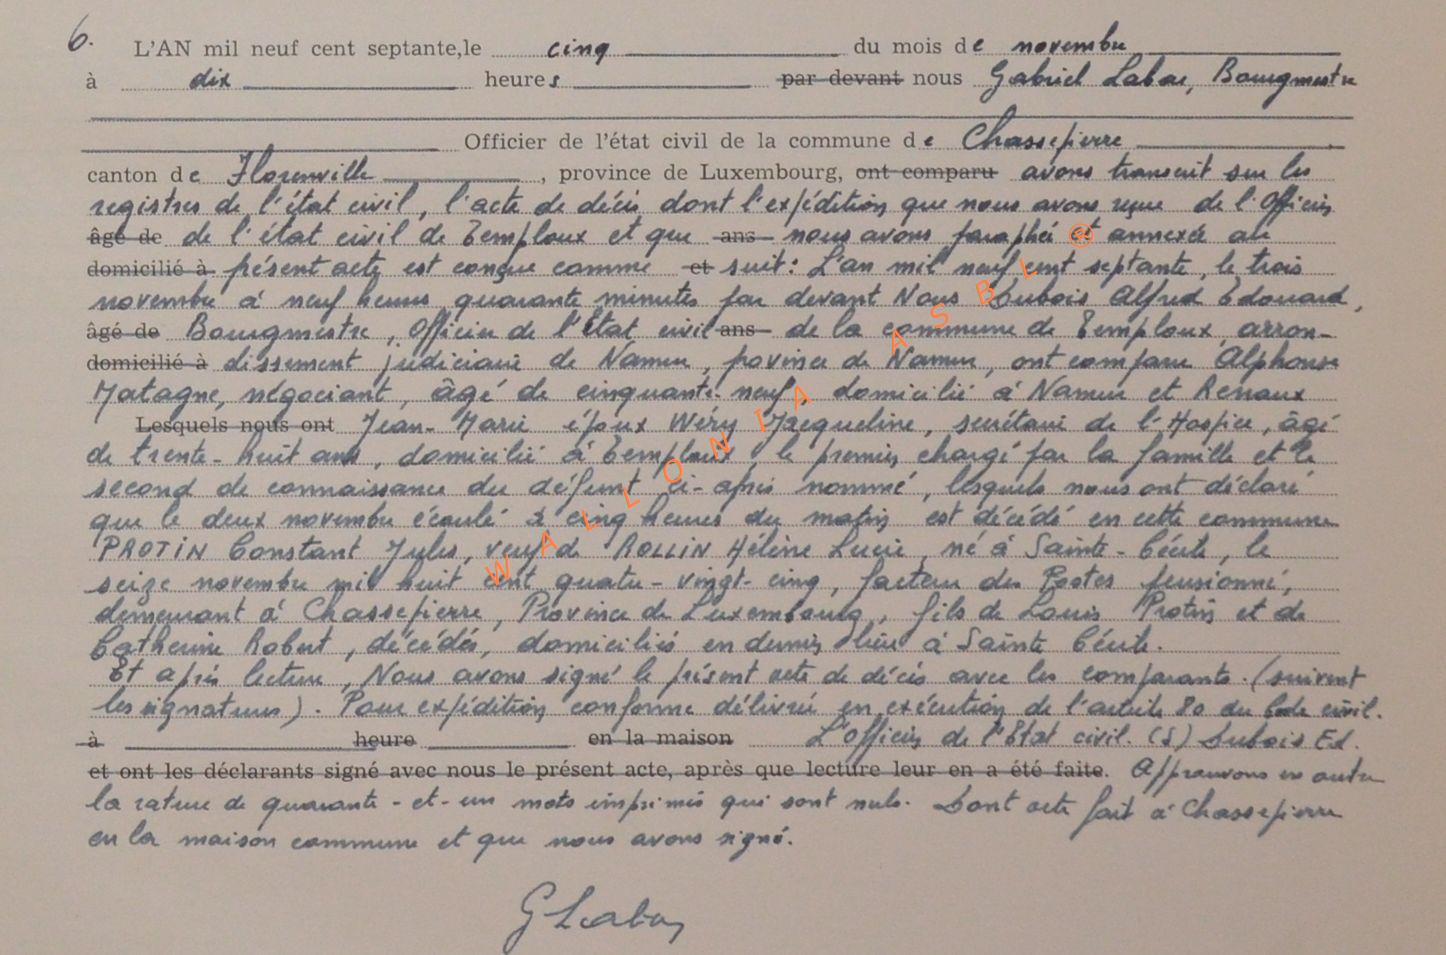 6. L'AN mil neuf cent septante, le cinq du mois de novembre
à dix heures par devant nous Gabriel Labar, Bourgmestre
Officier de l'état civil de la commune de Chassepierre
canton de Florenville, province de Luxembourg, ont comparu avons transcrit sur les
registres de l'état civil, l'acte de décès dont l'expédition que nous avons reçue de l'Officier
âgé de de l'état civil de Temploux et que ans nous avons paraphée et annexée au
domicilié à présent acte est conçue comme et suit : L'an mil neuf cent septante, le trois
novembre à neuf heures quarante minutes par devant Nous Dubois Alfred Edouard,
âgé de Bourgmestre, Officier de l'Etat civil ans de la commune de Temploux, arron-
domicilié à dissement judiciaire de Namur, province de Namur, ont comparu Alphonse
Matagne, négociant, âgé de cinquante-neuf, domicilié à Namur et Renaux
Lesquels nous ont Jean-Marie époux Wéry Jacqueline, secrétaire de l'Hospice, âgé
de trente-huit ans, domicilié à Temploux, le premier chargé par la famille et le
second de connaissance du défunt ci-après nommé, lesquels nous ont déclaré
que le deux novembre écoulé à cinq heures du matin est décédé en cette commune
PROTIN Constant Jules, veuf de ROLLIN Hélène Lucie, né à Sainte-Cécile, le
seize novembre mil huit cent quatre-vingt-cinq, facteur des Postes pensionné,
demeurant à Chassepierre, Province de Luxembourg, fils de Louis Protin et de
Catherine Robert, décédés, domiciliés en dernier lieu à Sainte Cécile.
Et après lecture, Nous avons signé le présent acte de décès avec les comparants. (suivent
les signatures). Pour expédition conforme délivrée en exécution de l'article 80 du Code civil.
à heure en la maison L'officier de l'Etat civil. (S) Dubois Ed.
et ont les déclarants signé avec nous le présent acte, après que lecture leur en a été faite. Approuvons en outre
la rature de quarante-et-un mots imprimés qui sont nuls. Dont acte fait à Chassepierre
en la maison commune et que nous avons signé.
G Labar
WALLONIA ASBL ®